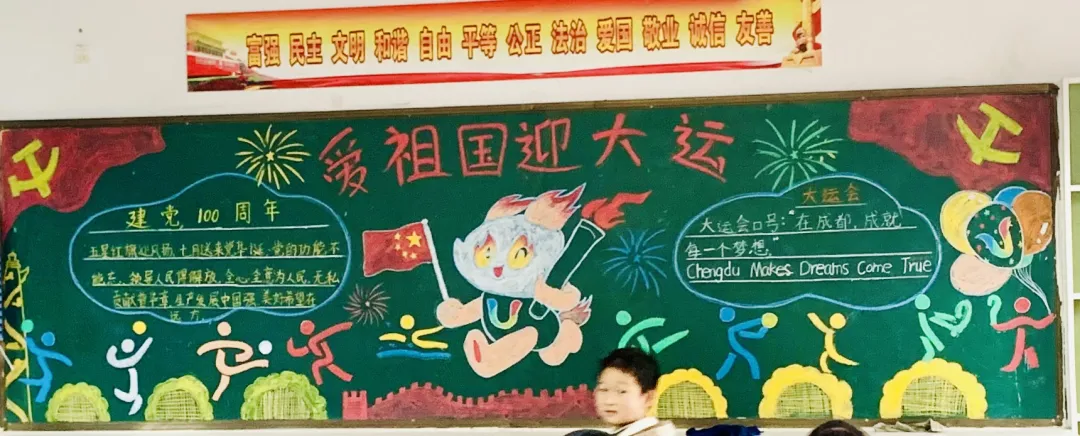 富强 民主 文明 和谐 自由 平等 公正 法治 爱国 敬业 诚信 友善
爱祖国迎大运
建党100周年
五星红旗迎风扬,七月送来党华诞,党的功能不
能忘,换来人民得解放,全心全意为人民,无私
贡献党率章,生产发展中国强,美好希望在
远方。
大运会
大运会口号:“在成都,成就
每一个梦想”
Chengdu Makes Dreams Come True